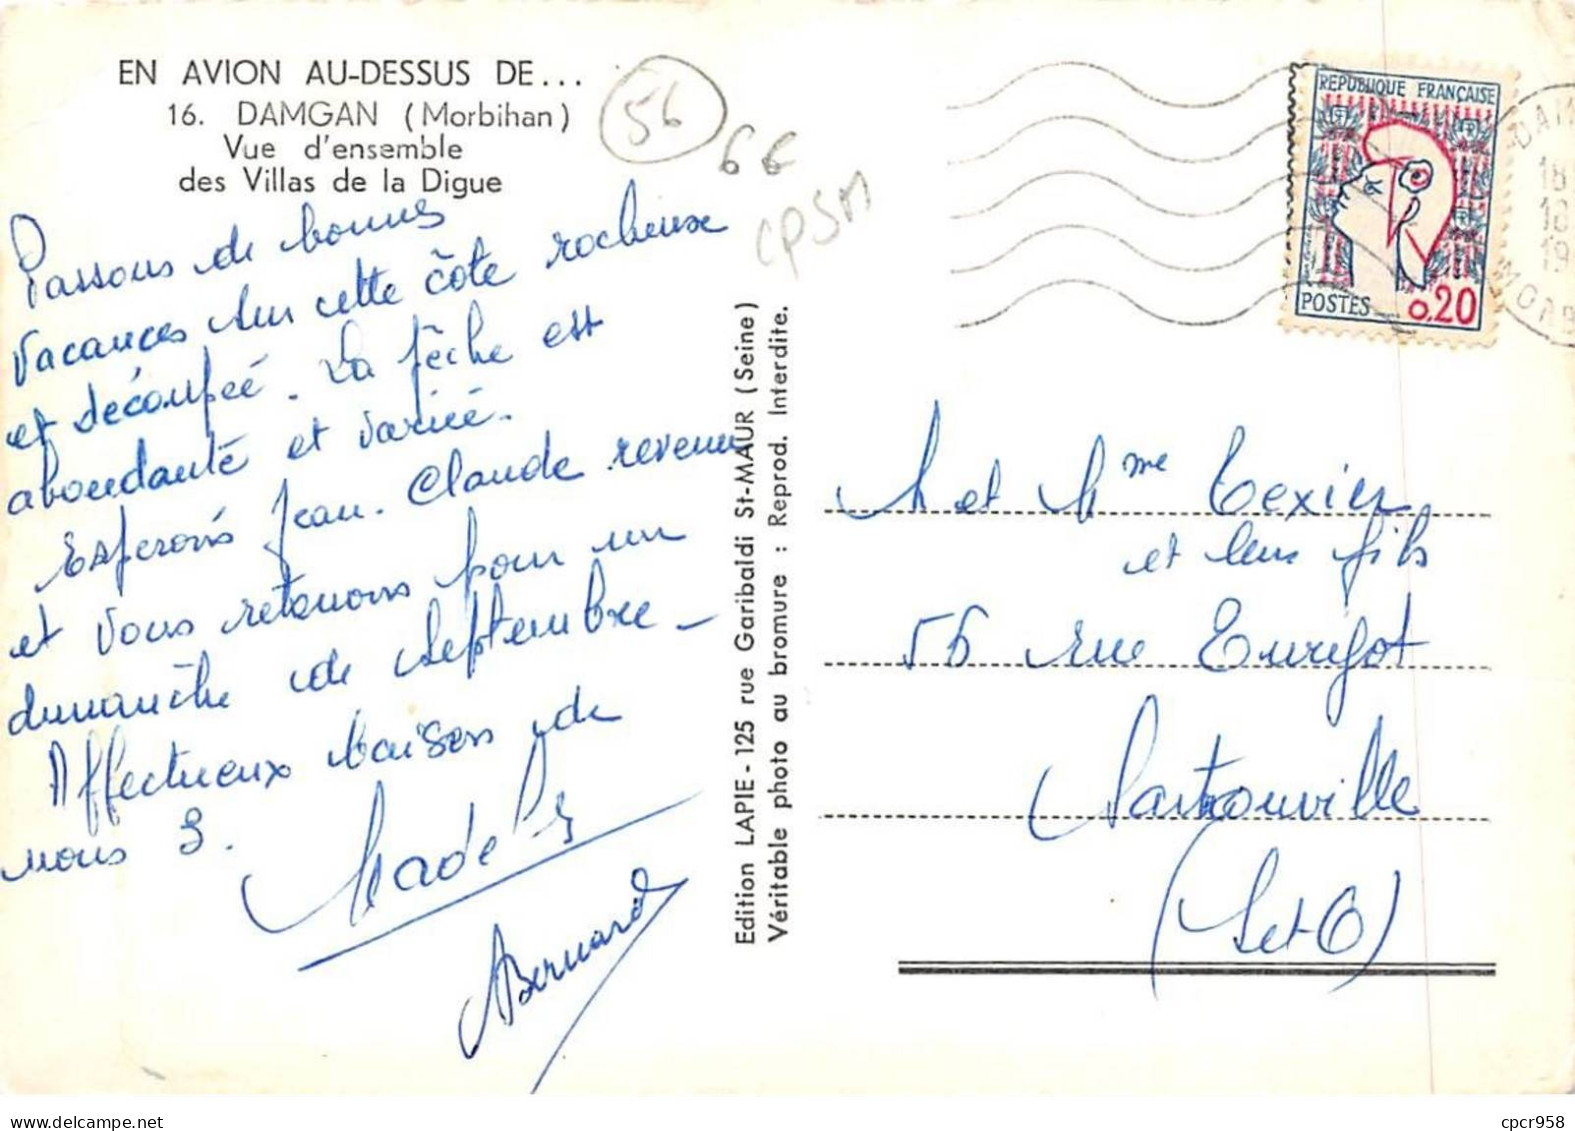 EN AVION AU-DESSUS DE...
16. DAMGAN (Morbihan)
Vue d'ensemble
des Villas de la Digue
56
66
CPSM
Passons de bonnes
vacances sur cette côte rocheuse
et découpée. La pêche est
abondante et variée.
Esperons Jean-Claude revenu
et vous retenons pour un
dimanche de septembre_
Affectueux baisers de
nous 3.
Bernard
Edition LAPIE - 125 rue Garibaldi St-MAUR (Seine)
Véritable photo au bromure : Reprod. Interdite.
REPUBLIQUE FRANÇAISE
POSTES
0,20
M et Mme Texier
et leur fils
56 rue Turgot
Sartrouville
(Set-O)
www.delcampe.net
cpcr958